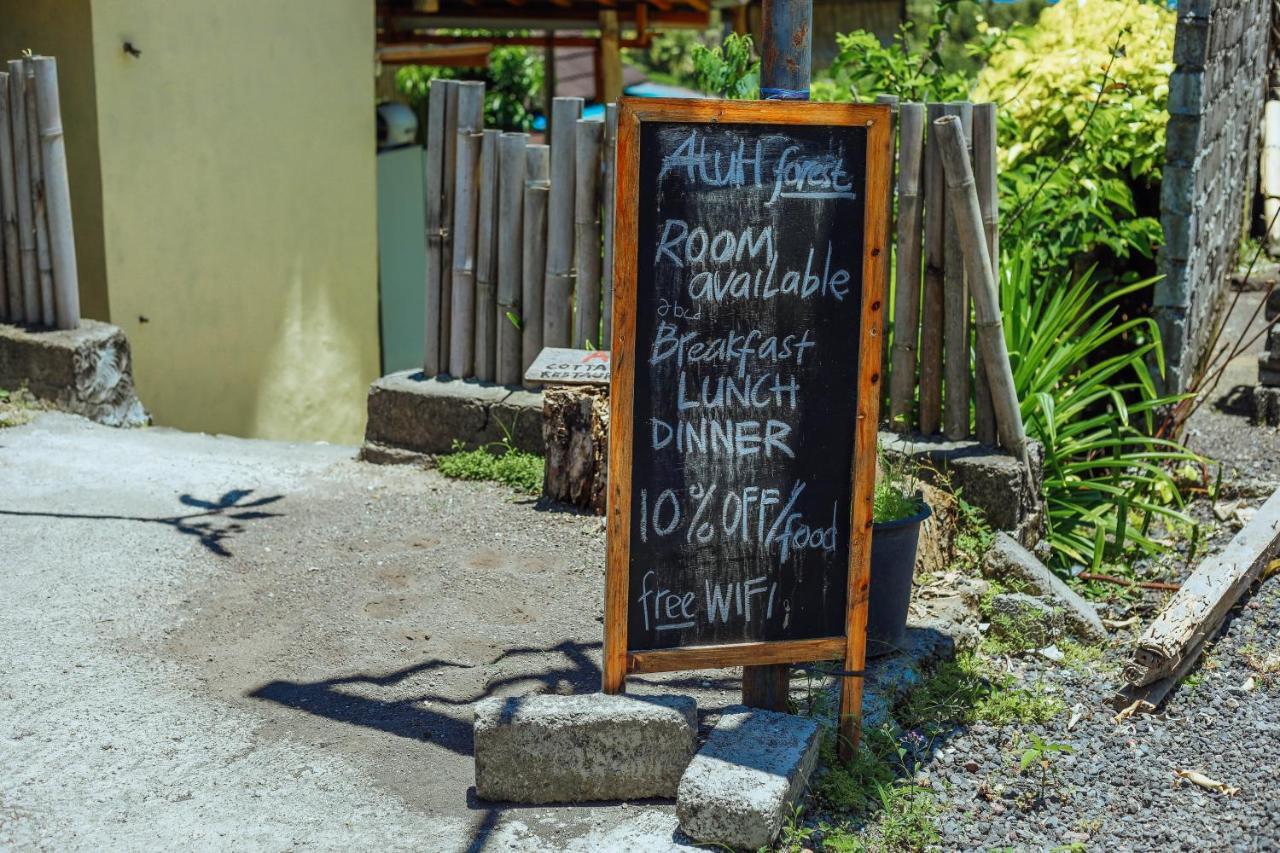 AtuH forest
ROOM
available
abcd
Breakfast
LUNCH
DINNER
10% OFF/food
free WIFI
COTTA
RESTAUR